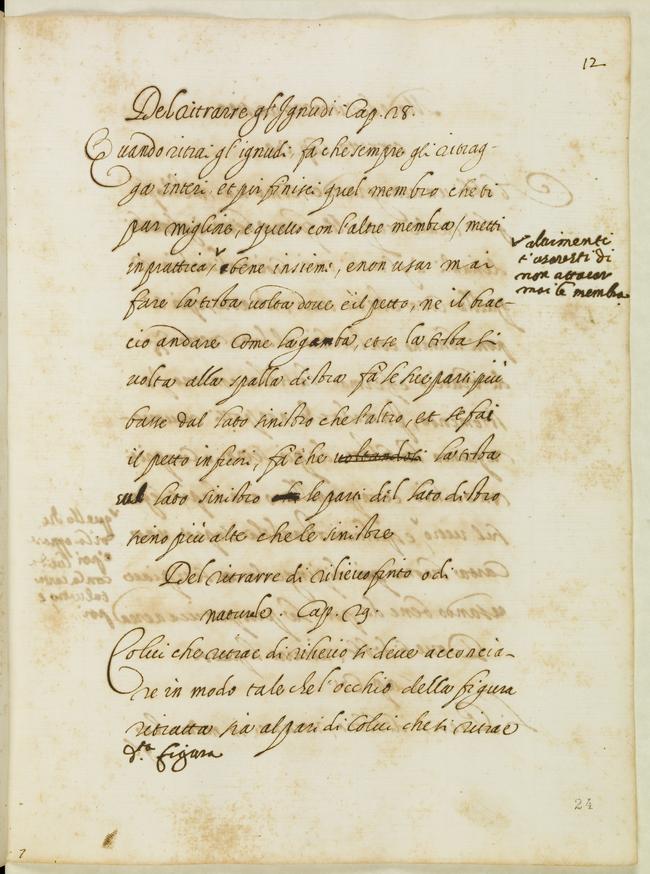 12
Del ritrarre gl'Ignudi Cap. 28.
Quando ritrai gl'ignudi fà che sempre gli ritrag-
ga interi, et poi finisci quel membro che ti
par migliore, e quello con l'altre membra metti
in prattica, e bene insieme, e non usar mai
fare la testa volta dove è il petto, ne il brac-
cio andare come la gamba, et se la testa si
volta alla spalla destra fà le sue parti più
basse dal lato sinistro che l'altro, et se fai
il petto in fuori, fà che voltandosi la testa
sul lato sinistro le parti del lato destro
sieno più alte che le sinistre
altrimenti
t'averti di
non attacar
mai le membra
Del ritrarre di rilievo finto o di
naturale. Cap. 29.
Colui che ritrae di rilievo si deve acconcia-
re in modo tale che l'occhio della figura
ritratta sia al pari di Colui che ti ritrae
d.ta figura
24